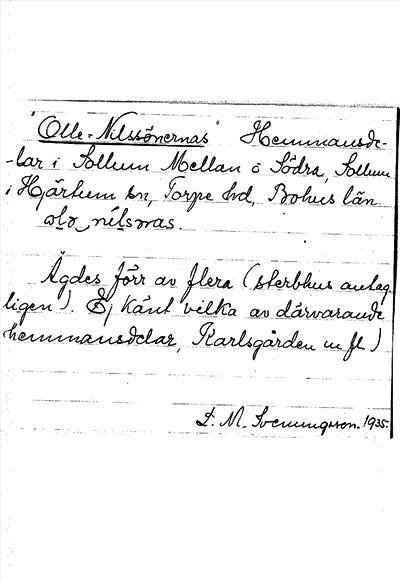 "Olle-Nilssönernas" Hemmansde-
-lar i Sollum Mellan o Södra, Sollum
i Hjärtum sn, Torpe hd, Bohus län.
Ägdes förr av flera (sterbhus antag-
ligen). Ej känt vilka av därvarande
hemmansdelar, Karlsgården m fl)
L. M. Svenungsson. 1935.